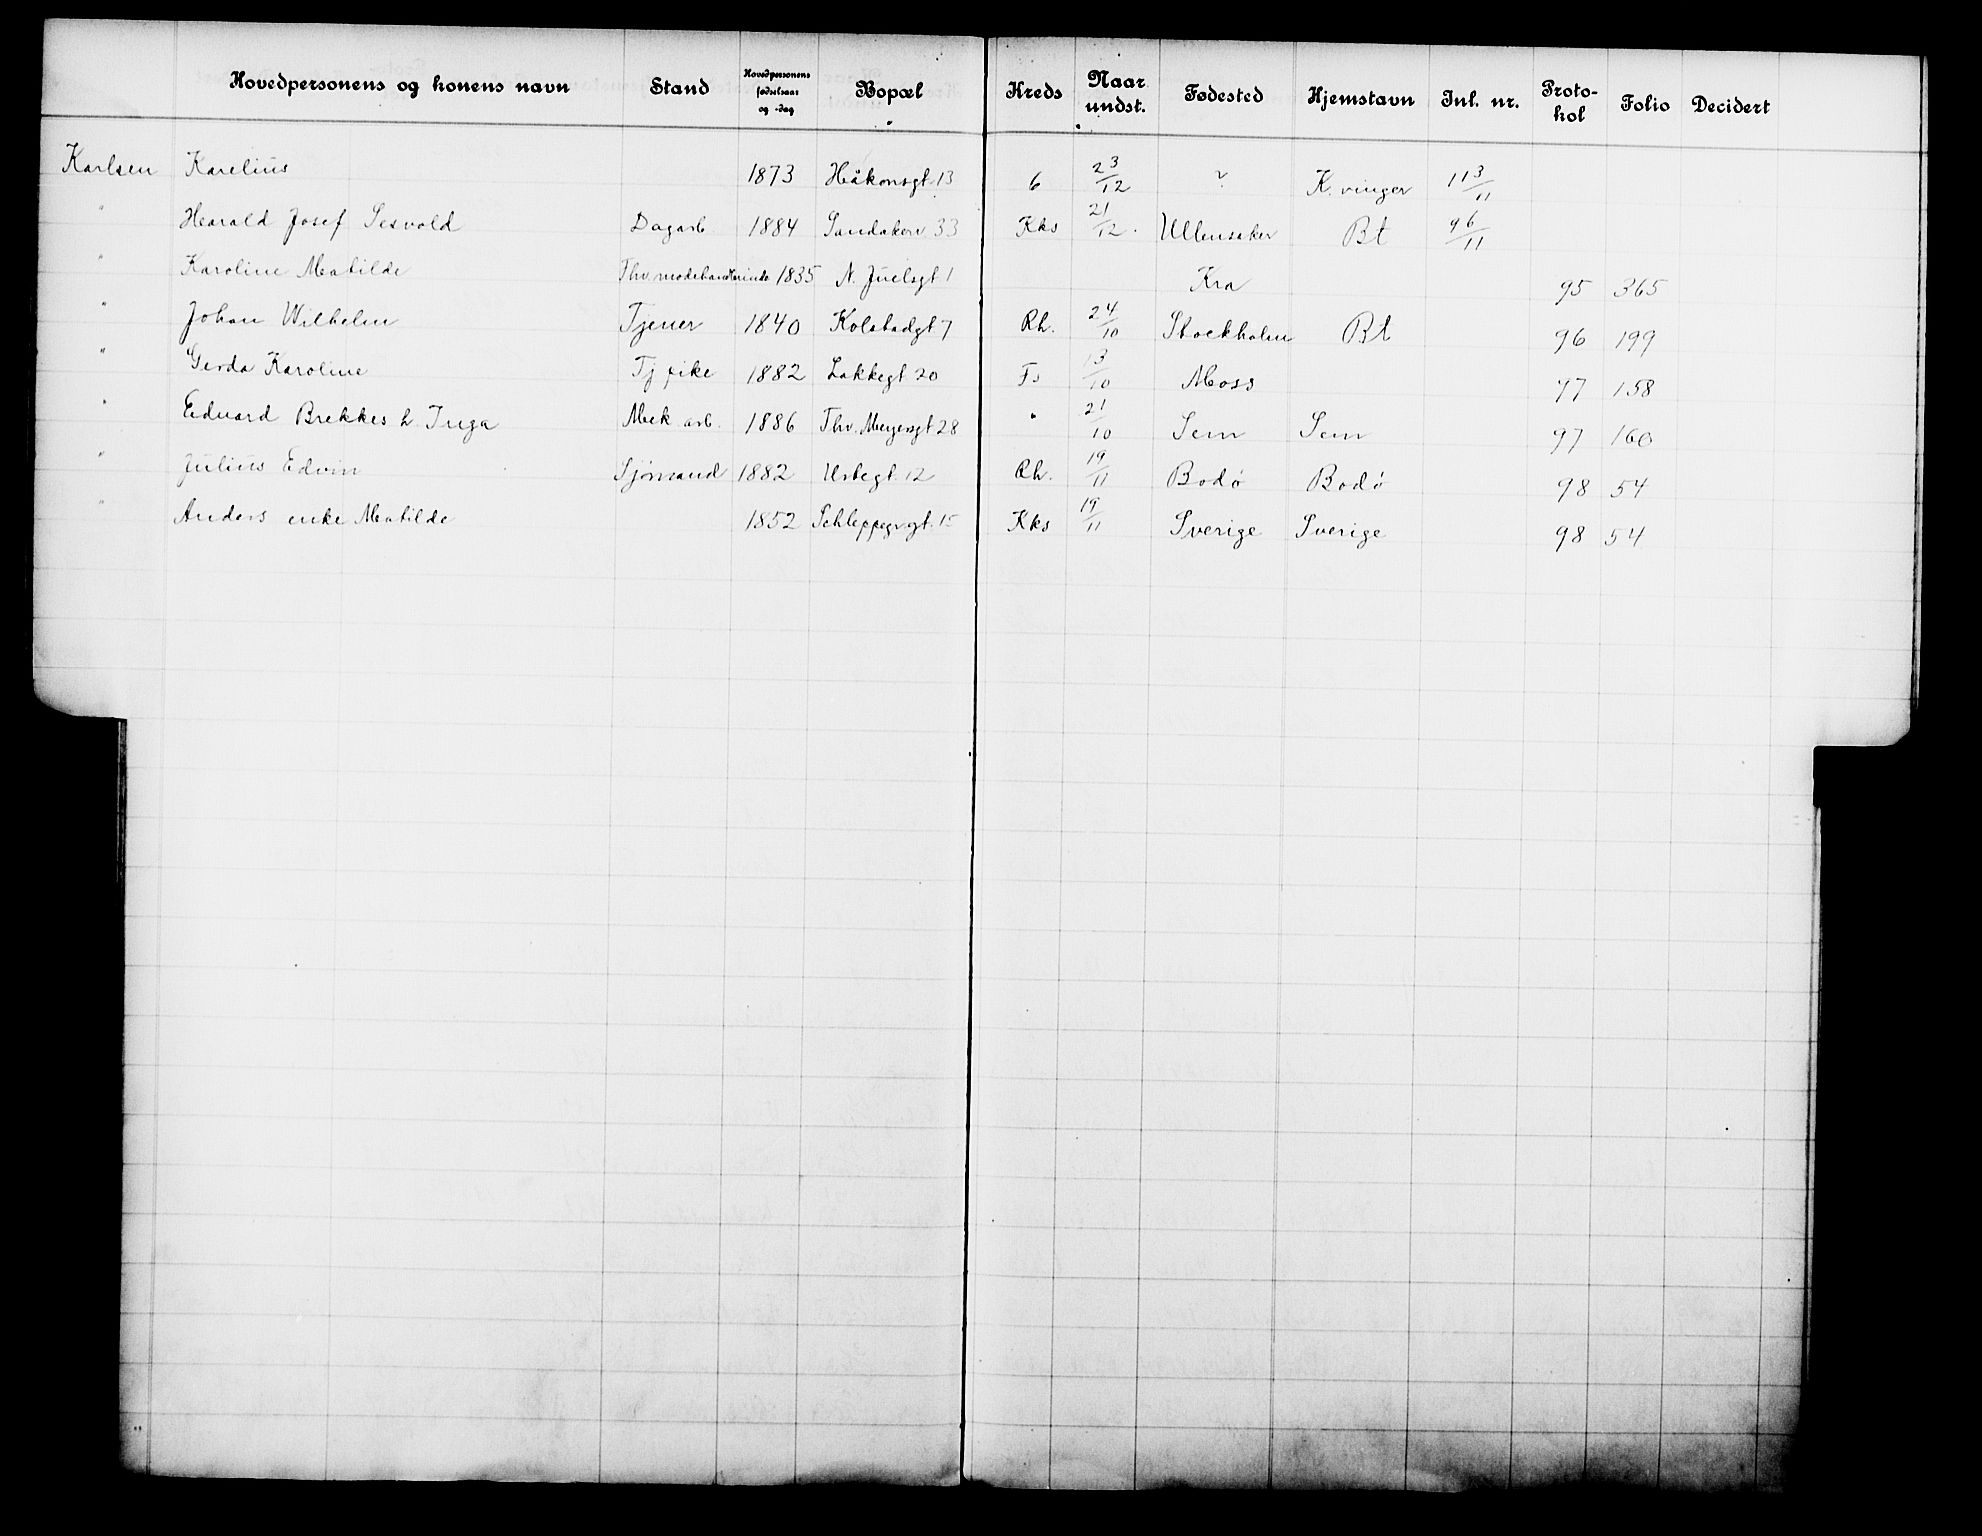 Hovedpersonens og konens navn Stand Hovedpersonens fødselsaar og -dag Bopæl Kreds Naar undst. Fødested Hjemstavn Inl. nr. Protokol Folio Decidert
Karlsen Karelius 1873 Håkonsgt. 13 6 23/12 ? K. vinger 113/11
" Harald Josef Sesvold Dagarb. 1884 Sandakerv. 33 Kks 21/12. Ullensaker Bt 96/11
" Karoline Matilde Fhv. modehandlerinde 1835 N. Juelsgt 1 Kra 95 365
" Johan Wilhelm Tjener 1840 Kolstadgt 7 Rh. 24/10 Stockholm Bt 96 199
" Gerda Karoline Tj pike 1882 Lakkegt 20 Fs 13/10 Moss 97 158
" Edvard Brekkes h. Inga Mek. arb. 1886 Thv. Meyersgt 28 " 21/10 Sem Sem 97 160
" Julius Edvin Sjömand 1882 Urtegt. 12 Rh. 19/11 Bodø Bodø 98 54
" Anders enke Matilde 1852 Schleppegrgt. 15 Kks 19/11 Sverige Sverige 98 54